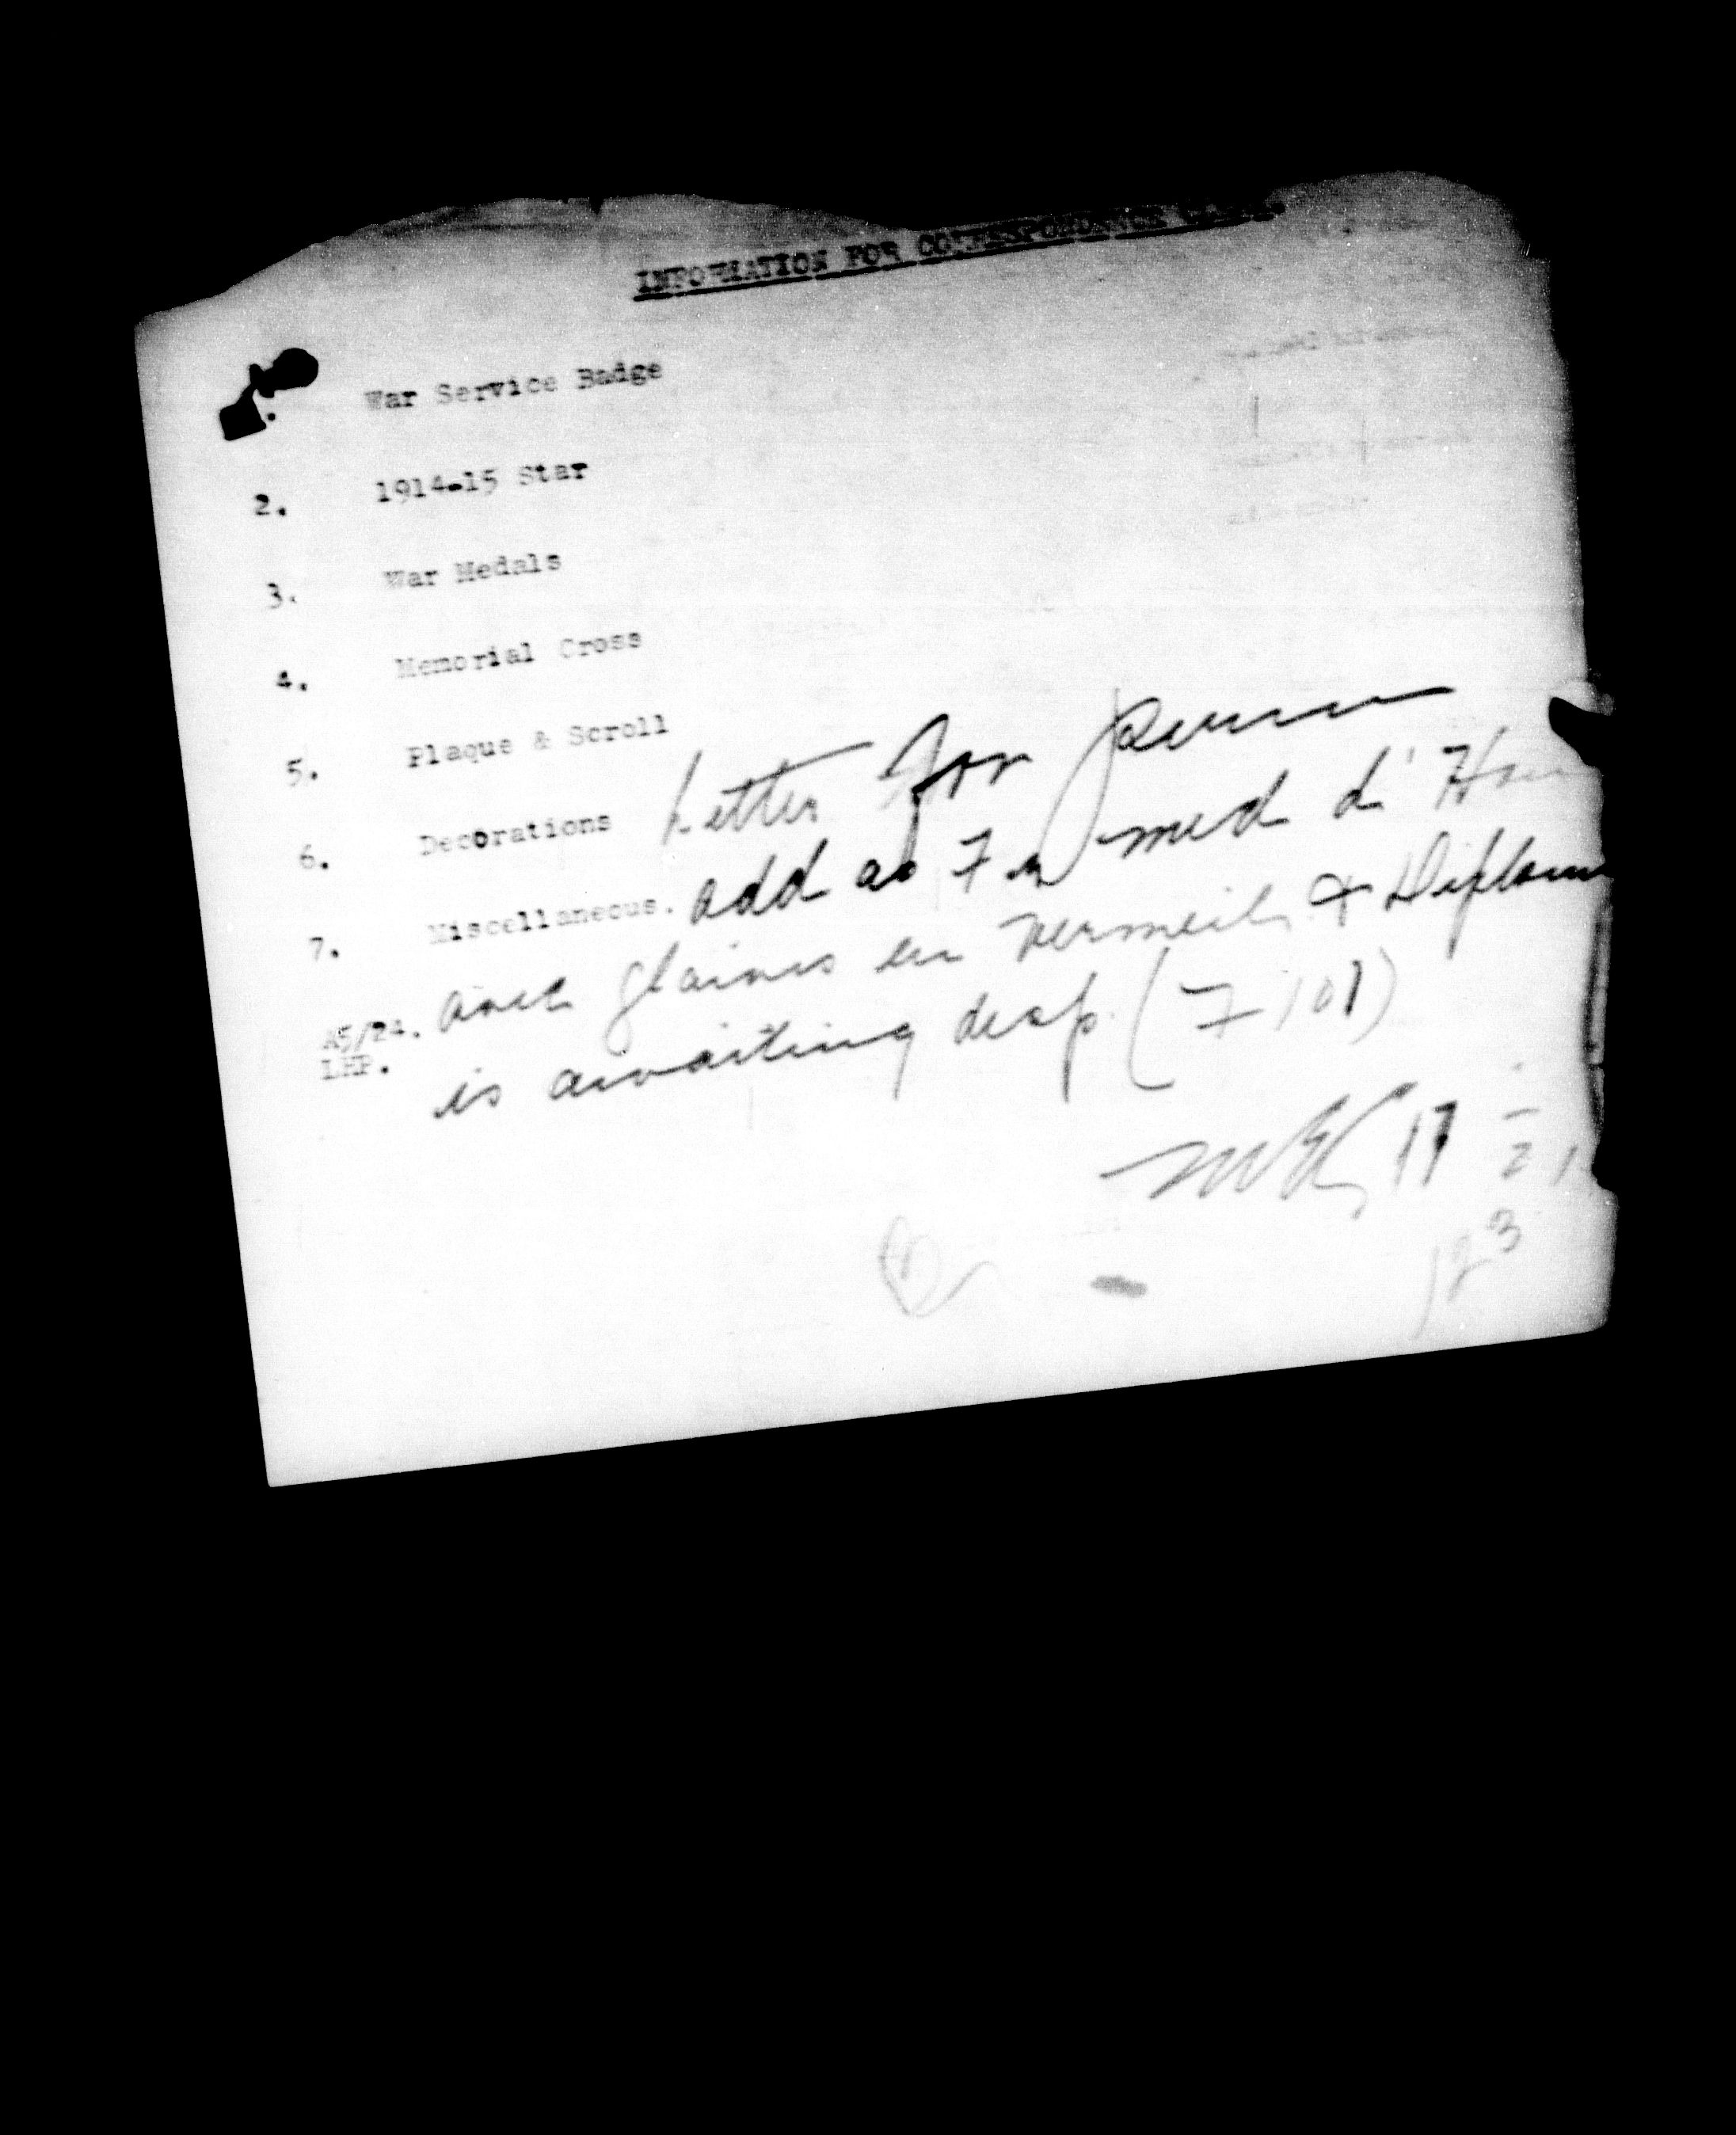 INFORMATION FOR CORRESPONDENCE
War Service Badge
2. 1914-15 Star
3. War Medals
4. Memorial Cross
5. Plaque & Scroll
6. Decorations Letter for
7. Miscellaneous. add as Fr med d'
avec glaives en vermeil & Diplom
A5/24.
LHP.
is awaiting desp. (7101)
17
123